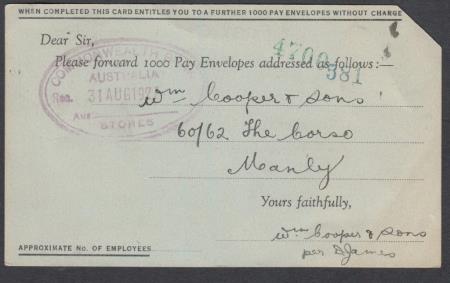 WHEN COMPLETED THIS CARD ENTITLES YOU TO A FURTHER 1000 PAY ENVELOPES WITHOUT CHARGE
Dear Sir,
4700
381
Please forward 1000 Pay Envelopes addressed as follows:—
COMMONWEALTH
AUSTRALIA
Rec. 31 AUG 192
STORES
Wm Cooper & Sons
60/62 The Corso
Manly
Yours faithfully,
Wm Cooper & Sons
per James
APPROXIMATE NO. OF EMPLOYEES